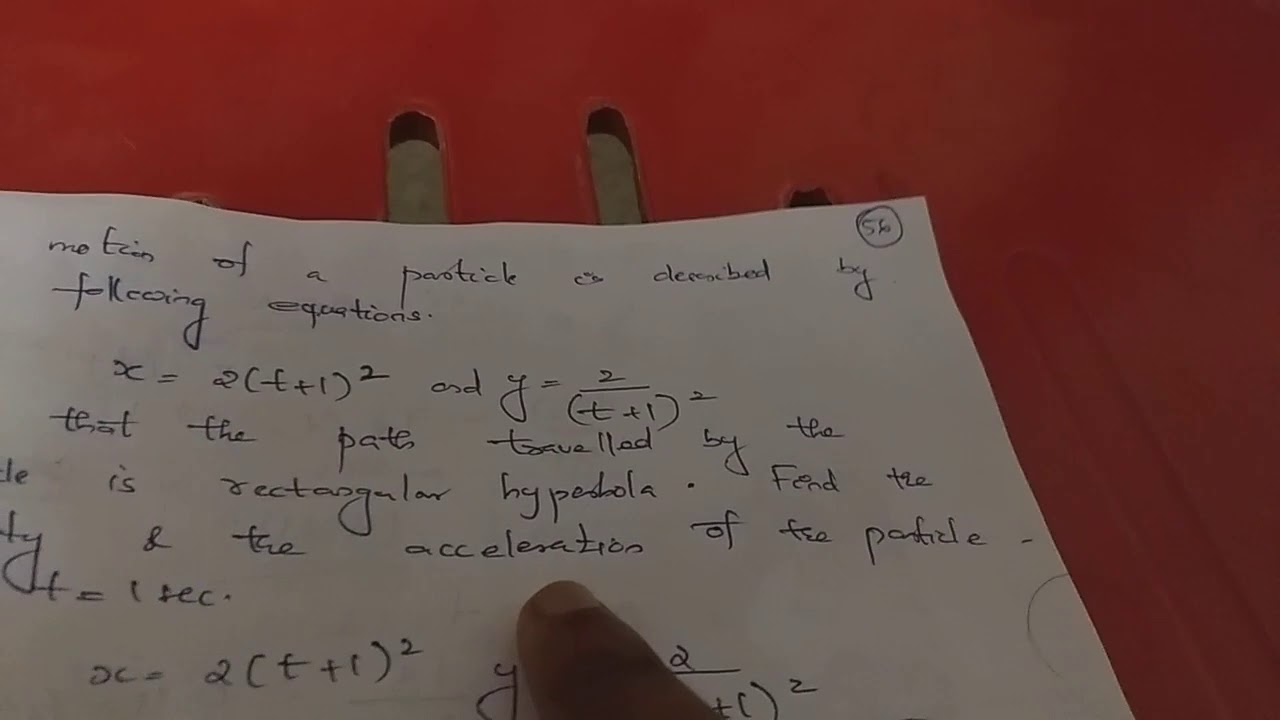 56
motion of a particle is described by
following equations.
x = 2(t+1)² and y = 2/(t+1)²
that the path travelled by the
cle is rectangular hyperbola. Find the
ty & the acceleration of the particle -
t = 1 sec.
x = 2(t+1)² y 2/+1)²